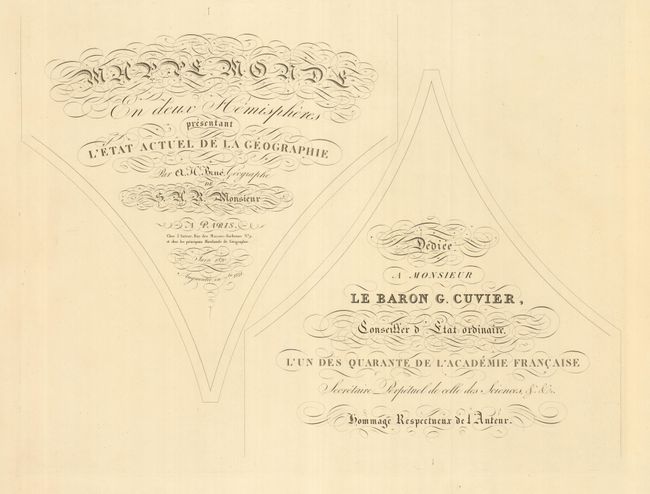 MAPPE MONDE
En deux Hémisphères
présentant
L'ÉTAT ACTUEL DE LA GÉOGRAPHIE
Par A. H. Brué Géographe
DE
S. A. R. Monsieur
A PARIS,
Chez l'Auteur, Rue des Maçons-Sorbonne N.º 9.
et chez les principaux Marchands de Géographie.
Juin 1820.
Augmentée en
Dédiée
A MONSIEUR
LE BARON G. CUVIER,
Conseiller d'Etat ordinaire,
L'UN DES QUARANTE DE L'ACADÉMIE FRANÇAISE
Secrétaire Perpétuel de celle des Sciences, &. &c.
Hommage Respectueux de l'Auteur.